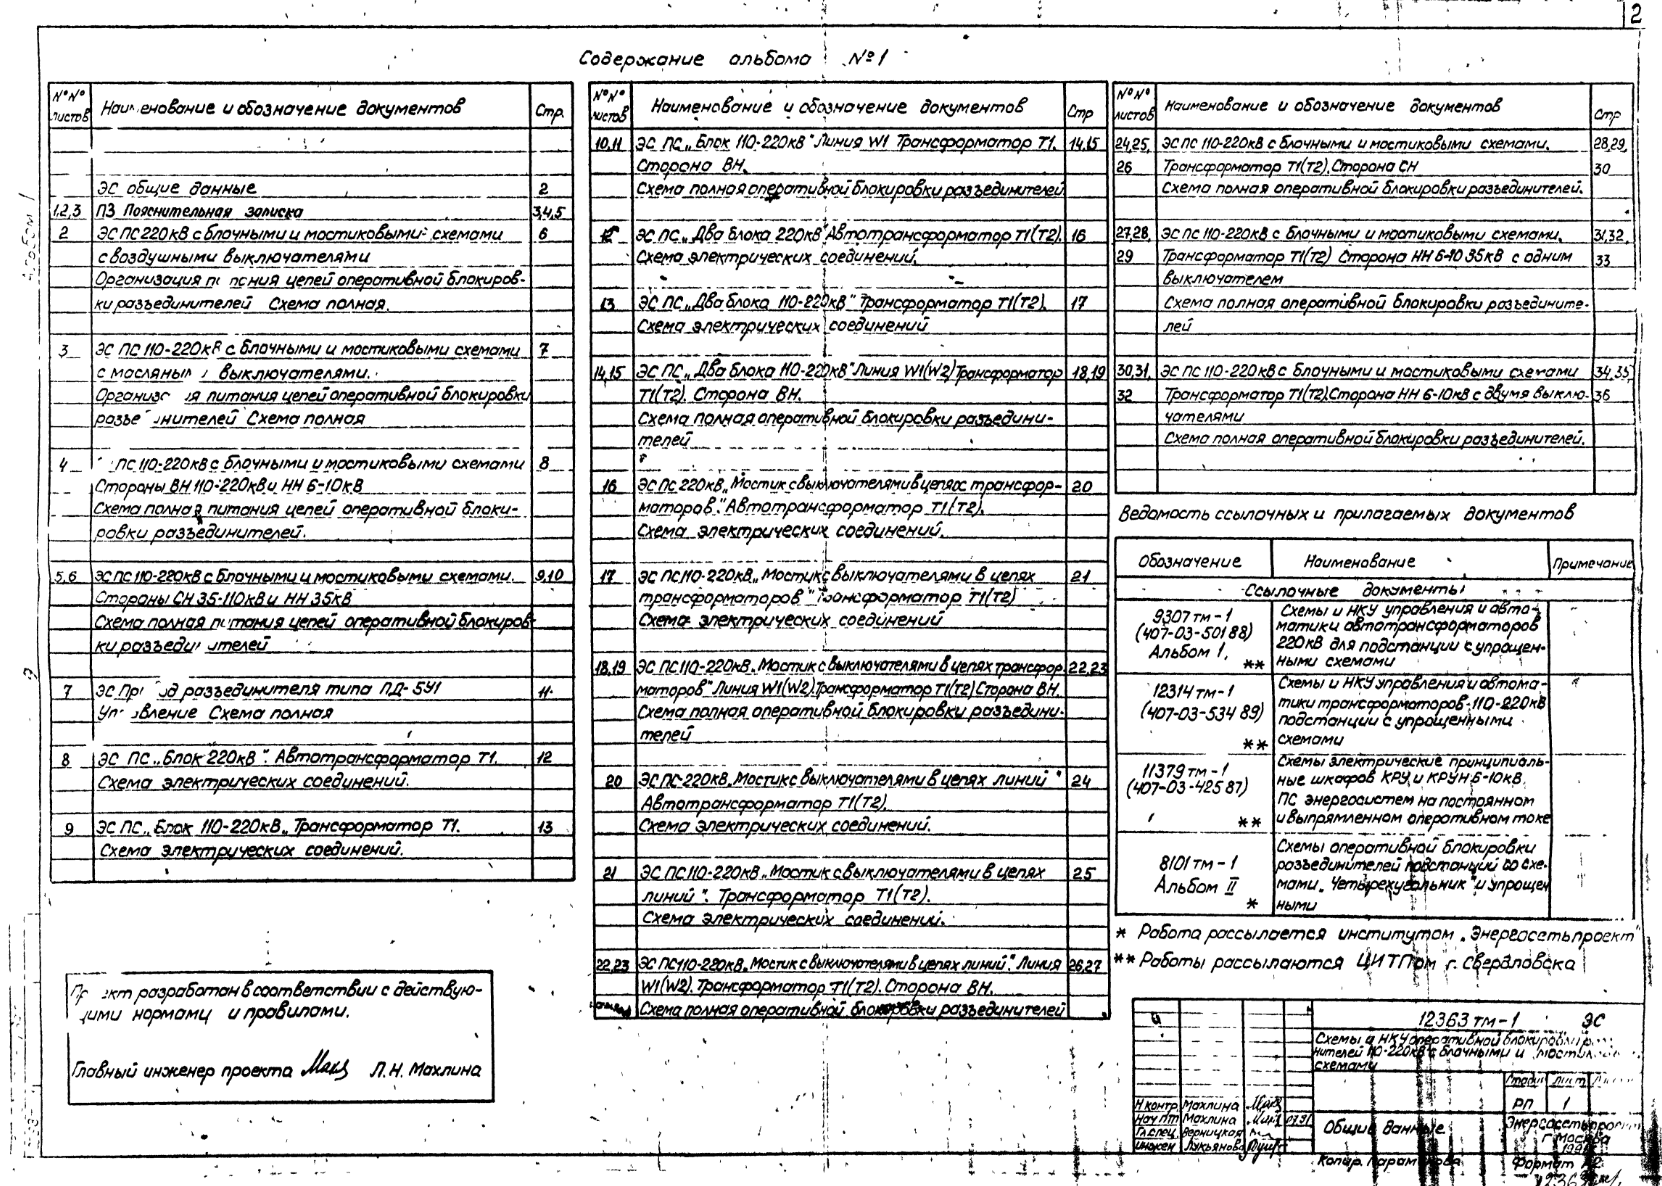 2
Содержание альбома №1
№№ листов
Наименование и обозначение документов
Стр.
ЭС общие данные 2
1,2,3 ПЗ Пояснительная записка 3,4,5
2 ЭС ПС 220кВ с блочными и мостиковыми схемами 6
с воздушными выключателями
Организация питания цепей оперативной блокиров-
ки разъединителей Схема полная.
3 ЭС ПС 110-220кВ с блочными и мостиковыми схемами 7
с масляными выключателями.
Организация питания цепей оперативной блокировки
разъединителей Схема полная
4 ПС 110-220кВ с блочными и мостиковыми схемами 8
Стороны ВН 110-220кВ и НН 6-10кВ
Схема полная питания цепей оперативной блоки-
ровки разъединителей.
5,6 ЭС ПС 110-220кВ с блочными и мостиковыми схемами. 9,10
Стороны СН 35-110кВ и НН 35кВ
Схема полная питания цепей оперативной блокиров-
ки разъединителей
7 ЭС Привод разъединителя типа ПД-5У1 11
Управление Схема полная
8 ЭС ПС „Блок 220кВ". Автотрансформатор Т1. 12
Схема электрических соединений.
9 ЭС ПС „Блок 110-220кВ„ Трансформатор Т1. 13
Схема электрических соединений.
Проект разработан в соответствии с действую-
щими нормами и правилами.
Главный инженер проекта Л.Н. Махлина
№№ листов
Наименование и обозначение документов
Стр
10,11 ЭС ПС „Блок 110-220кВ" Линия W1 Трансформатор Т1. 14,15
Сторона ВН.
Схема полная оперативной блокировки разъединителей
12 ЭС ПС „Два блока 220кВ" Автотрансформатор Т1(Т2). 16
Схема электрических соединений.
13 ЭС ПС „Два блока 110-220кВ" Трансформатор Т1(Т2). 17
Схема электрических соединений
14,15 ЭС ПС „Два блока 110-220кВ" Линия W1(W2) Трансформатор 18,19
Т1(Т2). Сторона ВН.
Схема полная оперативной блокировки разъедини-
телей
16 ЭС ПС 220кВ „Мостик с выключателями в цепях трансфор- 20
маторов." Автотрансформатор Т1(Т2).
Схема электрических соединений.
17 ЭС ПС 110-220кВ „Мостик с выключателями в цепях 21
трансформаторов" Трансформатор Т1(Т2)
Схема электрических соединений
18,19 ЭС ПС 110-220кВ „Мостик с выключателями в цепях трансфор- 22,23
маторов" Линия W1(W2) Трансформатор Т1(Т2) Сторона ВН.
Схема полная оперативной блокировки разъедини-
телей
20 ЭС ПС 220кВ „Мостик с выключателями в цепях линий" 24
Автотрансформатор Т1(Т2).
Схема электрических соединений.
21 ЭС ПС 110-220кВ „Мостик с выключателями в цепях 25
линий". Трансформатор Т1(Т2).
Схема электрических соединений.
22,23 ЭС ПС 110-220кВ „Мостик с выключателями в цепях линий". Линия 26,27
W1(W2). Трансформатор Т1(Т2). Сторона ВН.
Схема полная оперативной блокировки разъединителей
№№ листов
Наименование и обозначение документов
Стр
24,25, ЭС ПС 110-220кВ с блочными и мостиковыми схемами. 28,29,
26 Трансформатор Т1(Т2). Сторона СН 30
Схема полная оперативной блокировки разъединителей.
27,28, ЭС ПС 110-220кВ с блочными и мостиковыми схемами. 31,32,
29 Трансформатор Т1(Т2) Сторона НН 6-10 35кВ с одним 33
выключателем
Схема полная оперативной блокировки разъедините-
лей
30,31, ЭС ПС 110-220кВ с блочными и мостиковыми схемами 34,35,
32 Трансформатор Т1(Т2). Сторона НН 6-10кВ с двумя выклю- 36
чателями
Схема полная оперативной блокировки разъединителей.
Ведомость ссылочных и прилагаемых документов
Обозначение Наименование Примечание
Ссылочные документы
9307 тм-1
(407-03-501 88)
Альбом 1. **
Схемы и НКУ управления и авто-
матики автотрансформаторов
220кВ для подстанции с упрощен-
ными схемами
12314 тм-1
(407-03-534 89)
**
Схемы и НКУ управления и автома-
тики трансформаторов 110-220кВ
подстанции с упрощенными
схемами
11379 тм-1
(407-03-425 87)
**
Схемы электрические принципиаль-
ные шкафов КРУ и КРУН 6-10кВ.
ПС энергосистем на постоянном
и выпрямленном оперативном токе
8101 тм-1
Альбом II
*
Схемы оперативной блокировки
разъединителей подстанций со схе-
мами „Четырехугольник" и упрощен
ными
* Работа рассылается институтом „Энергосетьпроект"
** Работы рассылаются ЦИТПом г. Свердловска
12363 тм-1 ЭС
Схемы и НКУ оперативной блокировки
нителей 110-220кВ с блочными и
схемами
Стадия Лист
РП 1
Н.контр Махлина
Нач ПТ Махлина 07.91
Гл.спец Верницкая
Инжен Лукьянова
Общие данные
Энергосетьпроект
г Москва
Копир.
Формат А2